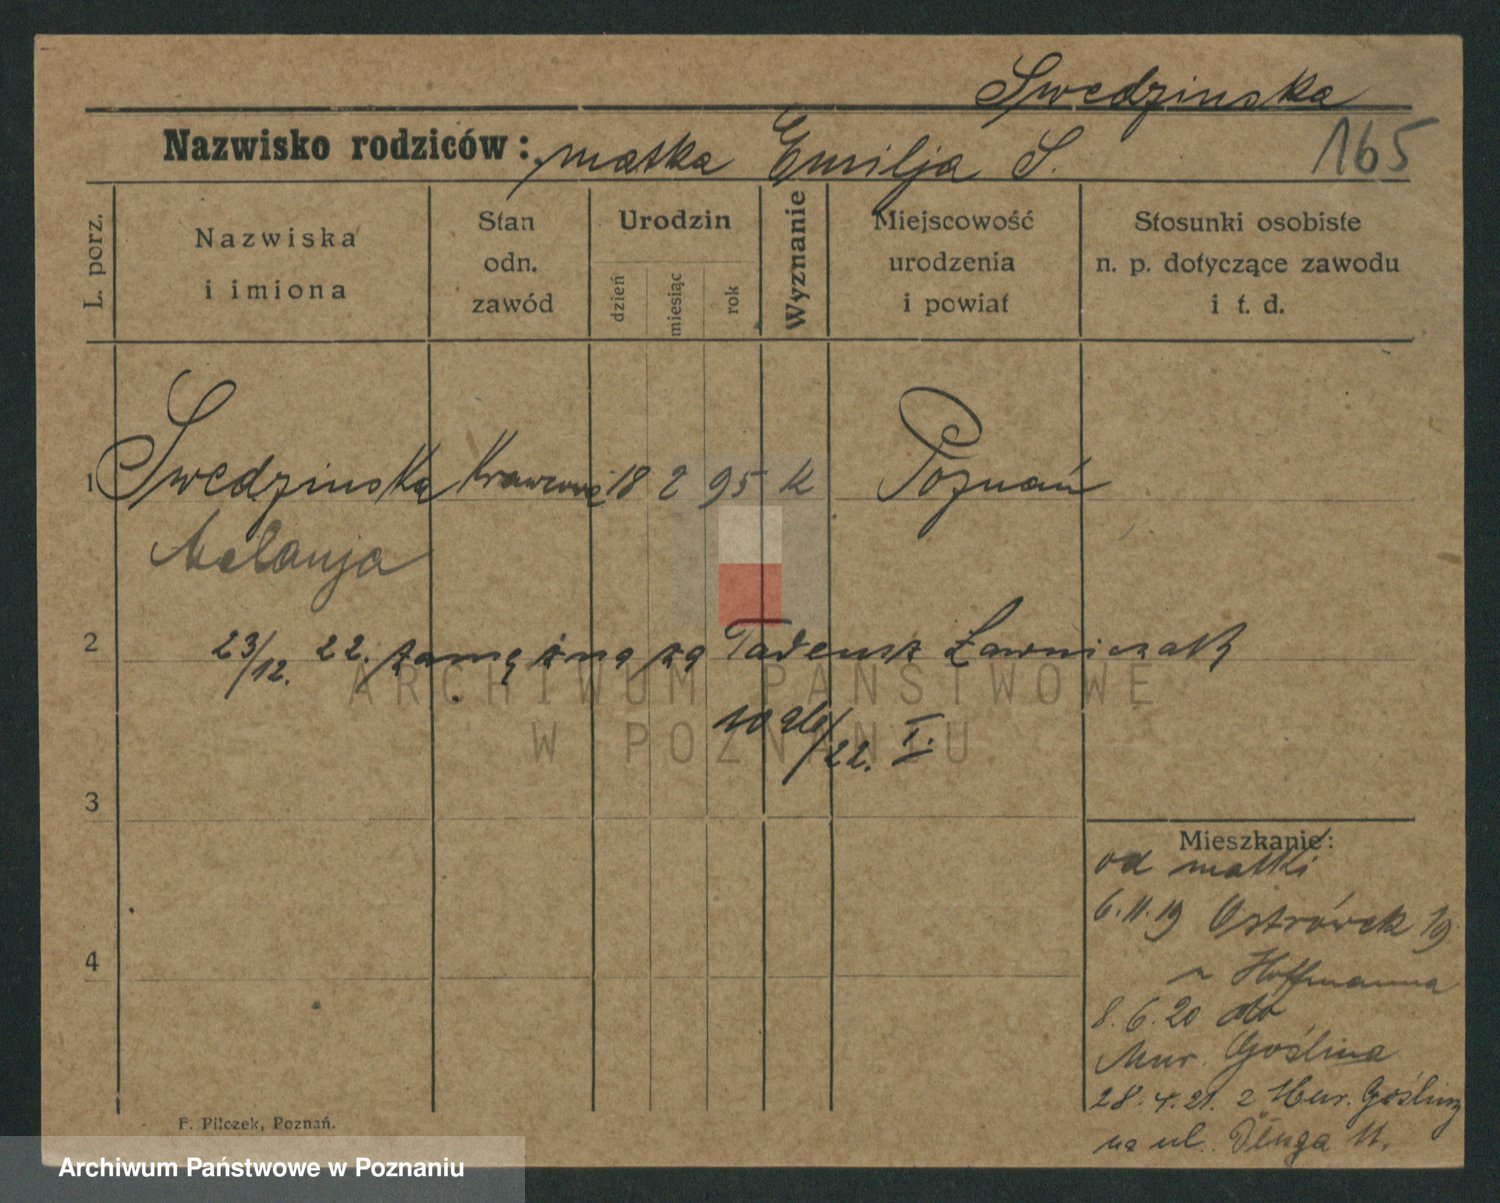 Swedzinska
Nazwisko rodziców: matka Emilja S.
165
L. porz.
Nazwiska
i imiona
Stan
odn.
zawód
Urodzin
dzień
miesiąc
rok
Wyznanie
Miejscowość
urodzenia
i powiat
Stosunki osobiste
n. p. dotyczące zawodu
i t. d.
1 Swedzinska Krawcowa 18 2 95 k Poznań
Melanja
2 23/12. 22. zamężna za Tadeusz Ławniczak
26/22. I.
3
Mieszkanie:
od matki
6.11.19 Ostrówek 19
4
u Hoffmanna
8.6.20 do
Mur. Goślina
28.4.21. z Mur. Gośliny
na ul. Długa 11.
F. Pilczek, Poznań.
ARCHIWUM PAŃSTWOWE
W POZNANIU
Archiwum Państwowe w Poznaniu